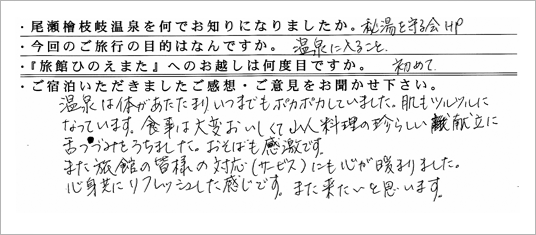 ・尾瀬檜枝岐温泉を何でお知りになりましたか。秘湯を守る会HP
・今回のご旅行の目的はなんですか。温泉に入ること。
・『旅館ひのえまた』へのお越しは何度目ですか。初めて
・ご宿泊いただきましたご感想・ご意見をお聞かせ下さい。
温泉は体があたたまりいつまでもポカポカしていました。肌もツルツルに
なっています。食事は大変おいしくて山人料理の珍らしい献立に
舌づつみをうちました。おそばも感激です。
また旅館の皆様の対応(サービス)にも心が暖まりました。
心身共にリフレッシュした感じです。また来たいと思います。